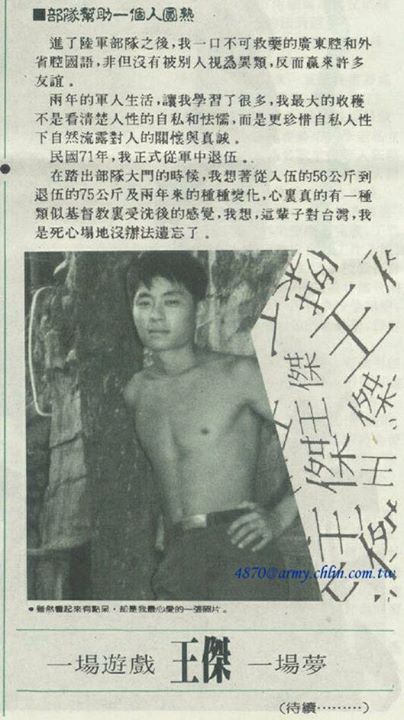 ■部隊幫助一個人圓熟
進了陸軍部隊之後，我一口不可救藥的廣東腔和外
省腔國語，非但沒有被別人視爲異類，反而贏來許多
友誼。
兩年的軍人生活，讓我學習了很多，我最大的收穫
不是看清楚人性的自私和怯懦，而是更珍惜自私人性
下自然流露對人的關懷與真誠。
民國71年，我正式從軍中退伍。
在踏出部隊大門的時候，我想著從入伍的56公斤到
退伍的75公斤及兩年來的種種變化，心裏真的有一種
類似基督教裏受洗後的感覺，我想，這輩子對台灣，我
是死心塌地沒辦法遺忘了。
王傑
王傑
王傑
王傑
4870@army.chlin.com.tw
●雖然看起來有點呆，却是我最心愛的一張照片。
一場遊戲 王傑 一場夢
（待續………）